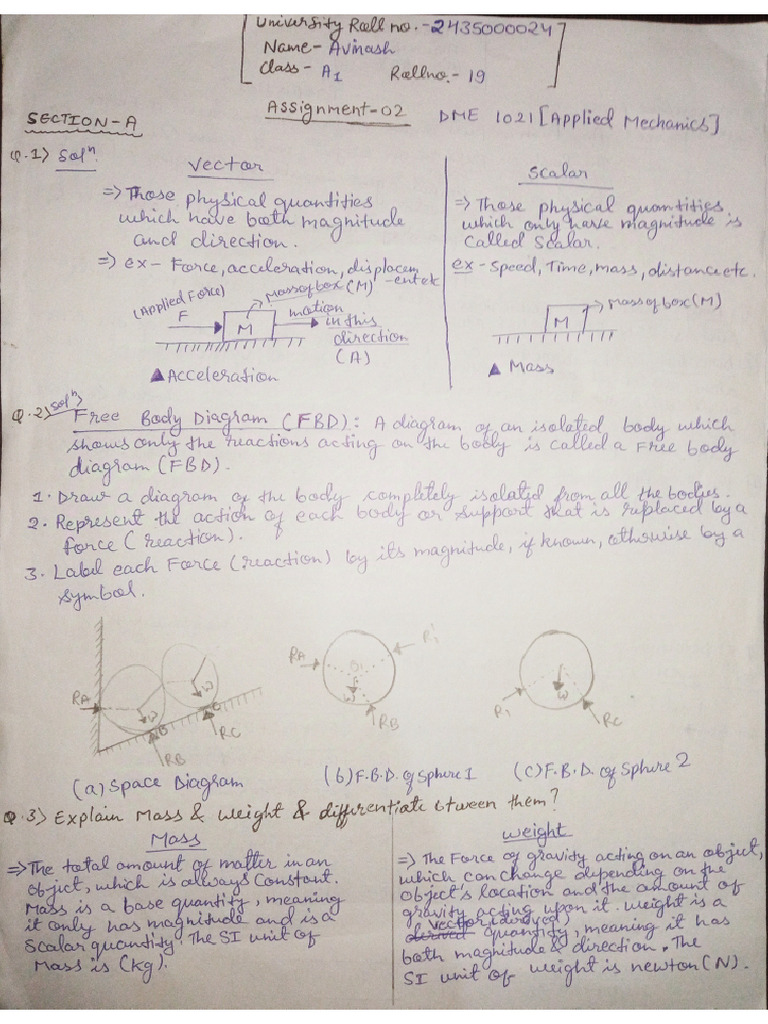 University Roll no.-2435000024
Name- Avinash
Class- A1 Rollno.- 19
Assignment-02 DME 1021 [Applied Mechanics]
SECTION-A
Q.1) Solⁿ.
Vector
=> Those physical quantities
which have both magnitude
and direction.
=> ex- Force, acceleration, displacem
-ent etc
(Applied Force)
F
M
Mass of box (M)
motion
in this
direction
(A)
▲Acceleration
Scalar
=> Those physical quantities
which only have magnitude is
called Scalar.
ex - Speed, Time, mass, distance etc.
M
Mass of box (M)
▲ Mass
Q.2) Solⁿ)
Free Body Diagram (FBD): A diagram of an isolated body which
shows only the reactions acting on the body is called a Free body
diagram (FBD).
1. Draw a diagram of the body completely isolated from all the bodies.
2. Represent the action of each body or support that is replaced by a
force (reaction).
3. Label each Force (reaction) by its magnitude, if known, otherwise by a
symbol.
RA
W
W
B
C
RB
RC
(a) Space Diagram
RA
R1'
O1
W
RB
(b) F.B.D. of Sphere 1
R1
W
RC
(c) F.B.D. of Sphere 2
Q.3) Explain Mass & Weight & differentiate btween them?
Mass
=> The total amount of matter in an
object, which is always Constant.
Mass is a base quantity, meaning
it only has magnitude and is a
Scalar quantity. The SI unit of
Mass is (kg).
Weight
=> The Force of gravity acting on an object,
which can change depending on the
object's location and the amount of
gravity acting upon it. Weight is a
(vector derived)
derived quantity, meaning it has
both magnitude & direction. The
SI unit of weight is newton (N).